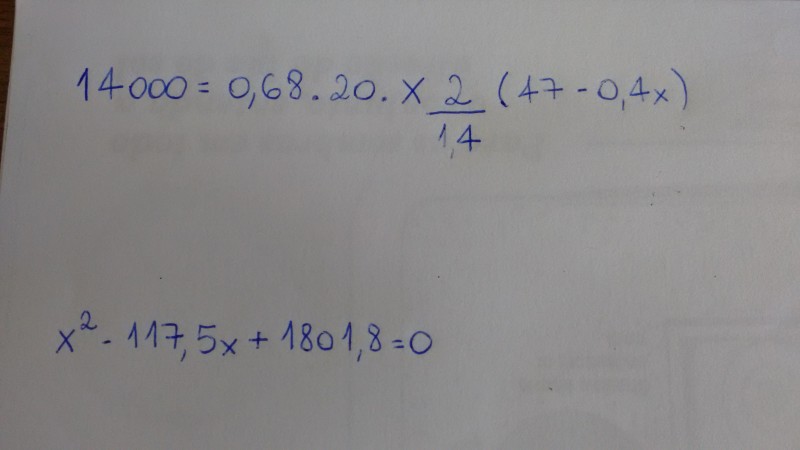 14000 = 0,68.20. x 2/1,4 (47 - 0,4x)
x² - 117,5x + 1801,8 = 0